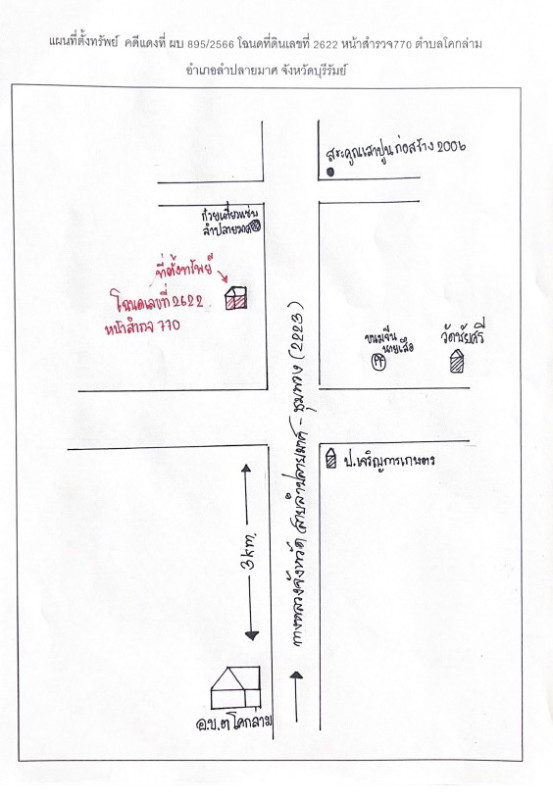 แผนที่ตั้งทรัพย์ คดีแดงที่ ผบ 895/2566 โฉนดที่ดินเลขที่ 2622 หน้าสำรวจ770 ตำบลโคกล่าม
อำเภอลำปลายมาศ จังหวัดบุรีรัมย์
สระคูณเสาปูน ก่อสร้าง 2006
ก๋วยเตี๋ยวแชมป์
ลำปลายมาศ
ที่ตั้งทรัพย์
โฉนดเลขที่ 2622
หน้าสำรวจ 770
ขนมจีน
นายเสือ
วัดชัยศรี
ป.เจริญการเกษตร
ทางหลวงจังหวัด (สายลำปลายมาศ - ชุมพวง (2223)
3 km.
อ.บ.ต โคกล่าม